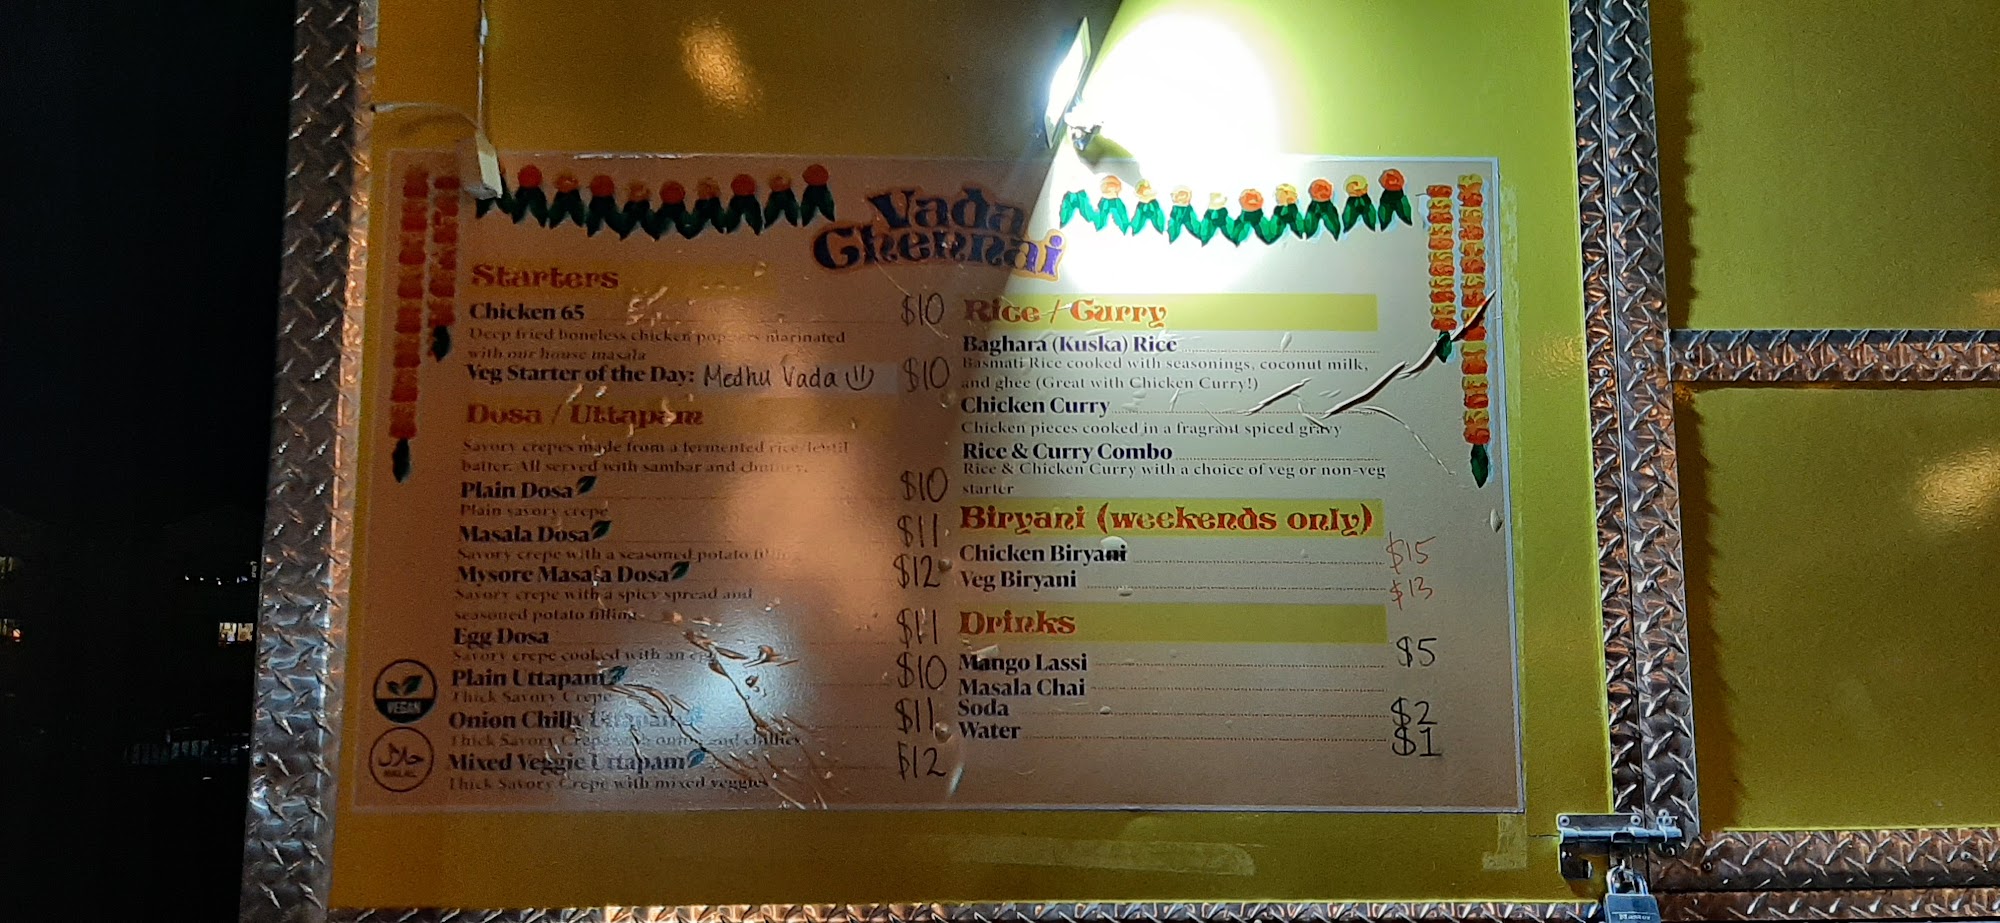 Vada
Chennai
Starters
Chicken 65 $10
Deep fried boneless chicken poppers marinated
with our house masala
Veg Starter of the Day: Medhu Vada $10
Dosa / Uttapam
Savory crepes made from a fermented rice/lentil
batter. All served with sambar and chutney.
Plain Dosa $10
Plain savory crepe
Masala Dosa $11
Savory crepe with a seasoned potato filling
Mysore Masala Dosa $12
Savory crepe with a spicy spread and
seasoned potato filling
Egg Dosa $11
Savory crepe cooked with an egg
Plain Uttapam $10
Thick Savory Crepe
Onion Chilly Uttapam $11
Thick Savory Crepe with onion and chillies
Mixed Veggie Uttapam $12
Thick Savory Crepe with mixed veggies
VEGAN
حلال
HALAL
Rice / Curry
Baghara (Kuska) Rice
Basmati Rice cooked with seasonings, coconut milk,
and ghee (Great with Chicken Curry!)
Chicken Curry
Chicken pieces cooked in a fragrant spiced gravy
Rice & Curry Combo
Rice & Chicken Curry with a choice of veg or non-veg
starter
Biryani (weekends only)
Chicken Biryani $15
Veg Biryani $13
Drinks
Mango Lassi $5
Masala Chai
Soda $2
Water $1